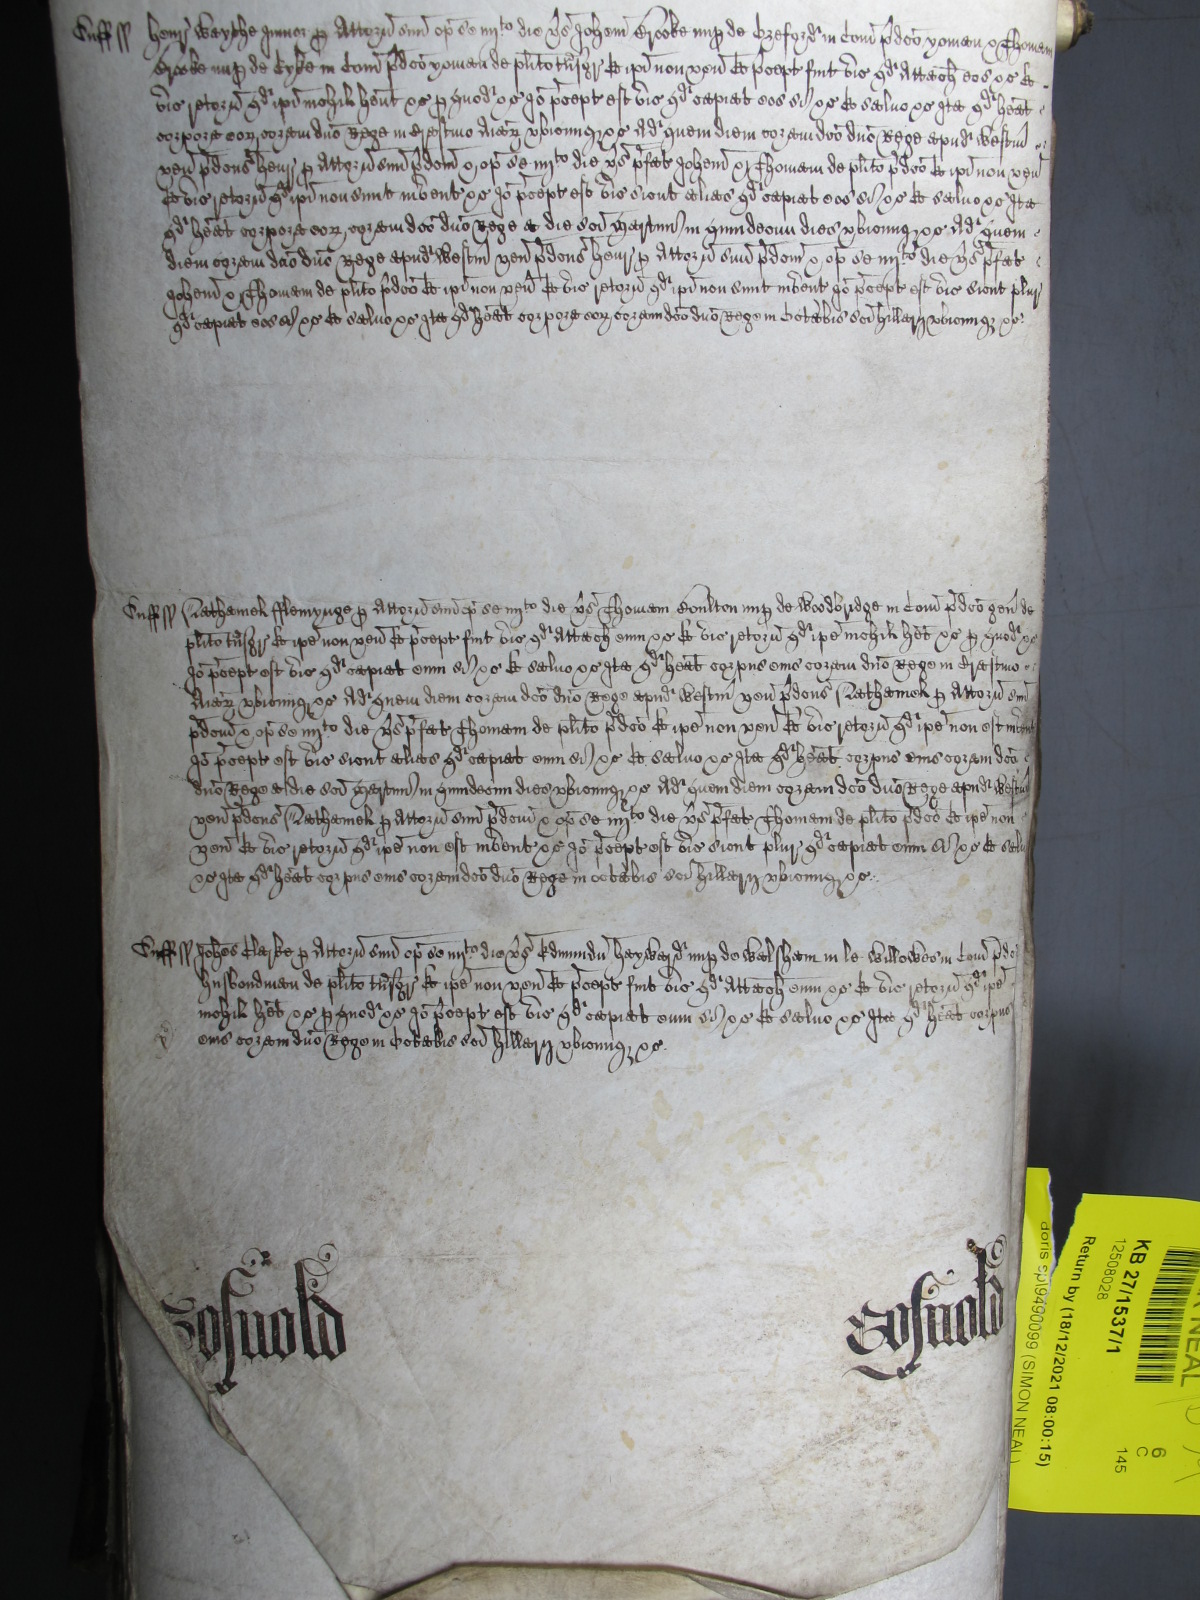 Suff ss Henr Waythe Junior p Attorn suu op se iiijto die vs Johem Brooke nup de Brefyrd in Com pdco yoman & Thomam
Brooke nup de Eyke in Com pdco yoman de plito tnsgr Et ipi non ven Et pcept fuit vic qd Attach eos &c Et
vic retorn qd ipi nichil hent &c p quod &c Jo pcept est vic qd capiat eos si &c Et salvo &c Ita qd heat
corpora eor coram dno Rege in Crastino Aiar vbicunq &c Ad quem diem coram dco dno Rege apud Westm
ven pdcus Henr p Attorn suu pdcm & op se iiijto die vs pfat Johem & Thomam de plito pdco Et ipi non ven
Et vic retorn qd ipi non sunt invent &c Jo pcept est vic sicut alias qd capiat eos si &c Et salvo &c Ita
qd heat corpora eor coram dco dno Rege a die sci Martini in quindecim dies vbicunq &c Ad quem
diem coram dco dno Rege apud Westm ven pdcus Henr p Attorn suu pdcm & op se iiijto die vs pfat
Johem & Thomam de plito pdco Et ipi non ven Et vic retorn qd ipi non sunt invent Jo pcept est vic sicut plur
qd capiat eos si &c Et salvo &c Ita qd heat corpora eor coram dco dno Rege in Octabis sci Hillarij vbicunq &c
Suff ss Nathaniel Flemynge p Attorn suu op se iiijto die vs Thomam Boulton nup de Woodbridge in Com pdco gen de
plito tnsgr Et ipe non ven Et pcept fuit vic qd Attach eum &c Et vic retorn qd ipe nichil het &c p quod &c
Jo pcept est vic qd capiat eum si &c Et salvo &c Ita qd heat corpus eius coram dno Rege in Crastino
Aiar vbicunq &c Ad quem diem coram dco dno Rege apud Westm ven pdcus Nathaniel p Attorn suu
pdcum & op se iiijto die vs pfat Thomam de plito pdco Et ipe non ven Et vic retorn qd ipe non est invent
Jo pcept est vic sicut alias qd capiat eum si &c Et salvo &c Ita qd heat corpus eius coram dco
dno Rege a die sci Martini in quindecim dies vbicunq &c Ad quem diem coram dco dno Rege apud Westm
ven pdcus Nathaniel p Attorn suu pdcum & op se iiijto die vs pfat Thomam de plito pdco Et ipe non
ven Et vic retorn qd ipe non est invent &c Jo pcept est vic sicut plur qd capiat eum si &c Et salvo
&c Ita qd heat corpus eius coram dco dno Rege in Octabis sci Hillarij vbicunq &c
Suff ss Johes Clarke p Attorn suu op se iiijto die vs Edmundu Hayward nup de Walsham in le Willowes in Com pdco
husbondman de plito tnsgr Et ipe non ven Et pcept fuit vic qd Attach eum &c Et vic retorn qd ipe
nichil het &c p quod &c Jo pcept est vic qd capiat eum si &c Et salvo &c Ita qd heat corpus
eius coram dno Rege in Octabis sci Hillarij vbicunq &c
Gosnold Gosnold
NEAL
KB 27/1537/1
12508028
Return by (18/12/2021 08:00:15)
doris spl9490099 (SIMON NEAL)
6
C
145